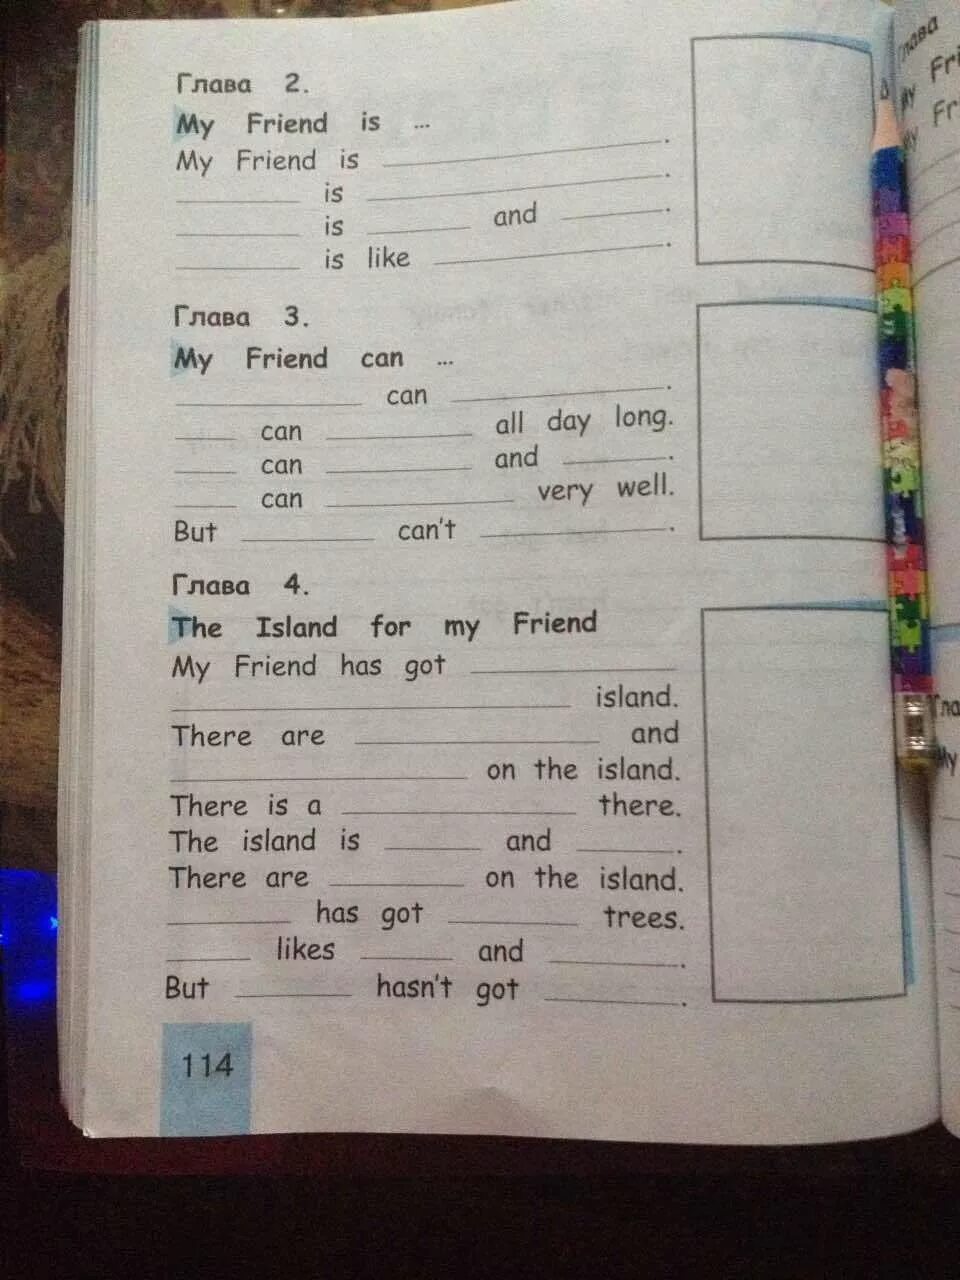 Глава 2.
My Friend is ...
My Friend is ____________.
____________ is ____________.
____________ is ____________ and ____________.
____________ is like ____________.
Глава 3.
My Friend can ...
____________ can ____________.
____ can ____________ all day long.
____ can ____________ and ____________.
____ can ____________ very well.
But ____________ can't ____________.
Глава 4.
The Island for my Friend
My Friend has got ____________
____________ island.
There are ____________ and
____________ on the island.
There is a ____________ there.
The island is ____________ and ____________.
There are ____________ on the island.
____________ has got ____________ trees.
____________ likes ____________ and ____________.
But ____________ hasn't got ____________.
114
Глава
My Fri
My Fr
Гла
My